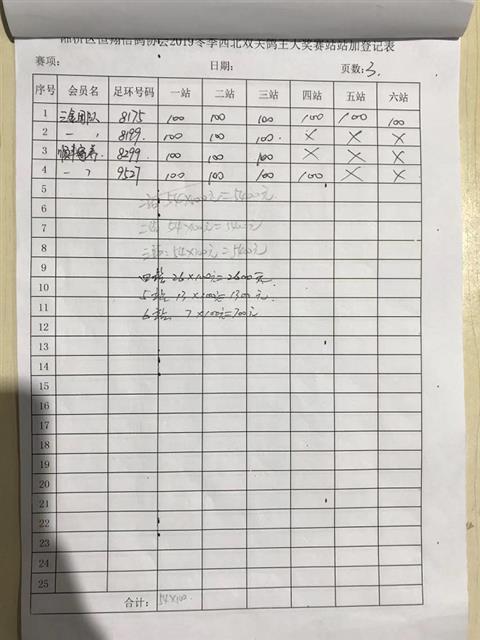 区恒翔信鸽协会2019冬季西北双关鸽王大奖赛站站加登记表
赛项: 日期: 页数: 3.
序号 会员名 足环号码 一站 二站 三站 四站 五站 六站
1 三金团队 8175 100 100 100 100 100 100
2 一 , 8199 100 100 100 X X X
3 8299 100 100 100 X X X
4 一 , 9527 100 100 100 100 X X
5 54×100元=5400元
6
7 54×100元=5400元
8 三站: 54×100元=5400元
9
四站 26×100元=2600元
10
5站 13×100元=1300元
11
6站 7×100元=700元
12
13
14
15
16
17
18
19
20
21
22
23
24
25
合计: 54×100